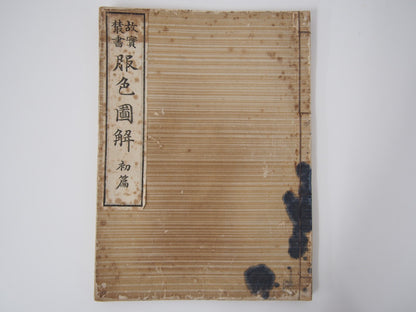 故實叢書
服色圖解 初篇